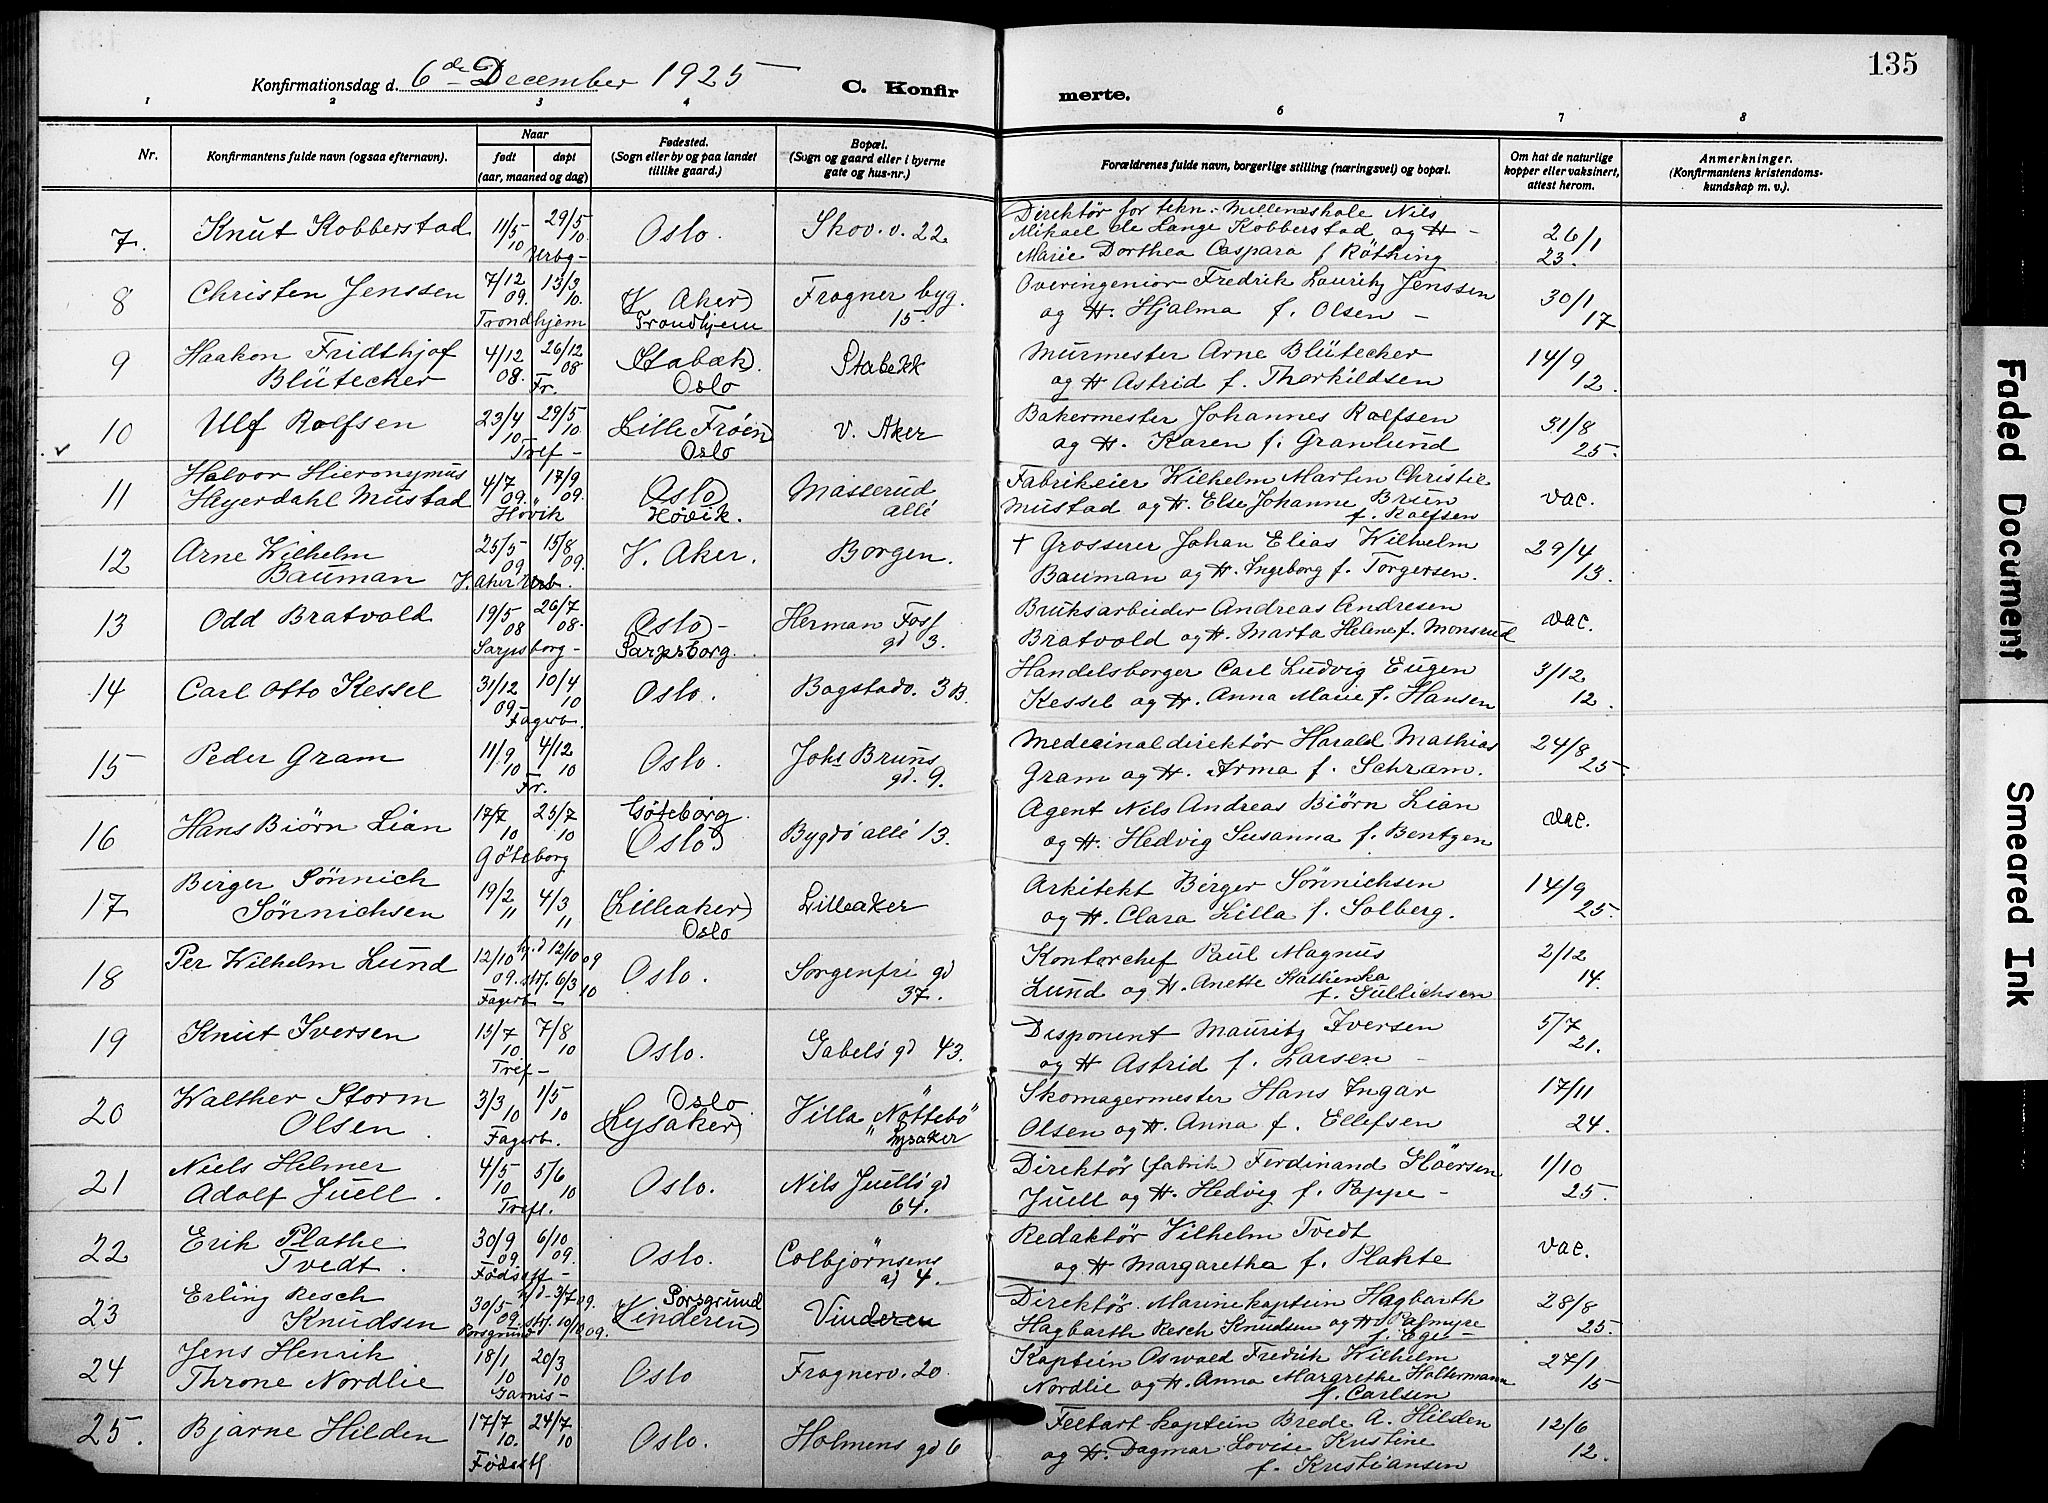 135
Konfirmationsdag d. 6de December 1925
C. Konfir merte.
1 2 3 4 6 7 8
Nr.
Konfirmantens fulde navn (ogsaa efternavn).
Naar
født døpt
(aar, maaned og dag)
Fødested.
(Sogn eller by og paa landet
tillike gaard.)
Bopæl.
(Sogn og gaard eller i byerne
gate og hus-nr.)
Forældrenes fulde navn, borgerlige stilling (næringsvei) og bopæl.
Om hat de naturlige
kopper eller vaksinert,
attest herom.
Anmerkninger.
(Konfirmantens kristendoms-
kundskap m. v.)
7. Knut Kobberstad 11/5 10 29/5 10. Urbg- Oslo. Skov. v. 22.
Direktør for tekn. Mellemskole Nils
Mikael de Lange Kobberstad og H-
Marie Dorthea Caspara f. Röthing
26/1 23.
8 Christen Jenssen 7/12 09. 13/3 10. Trondhjem
(V. Aker) Trondhjem
Frogner byg. 15.
Overingeniør Fredrik Lauritz Jenssen
og H. Hjalma f. Olsen -
30/1 17
9 Haakon Fridthjof
Blütecher 4/12 08. 26/12 08 Fr.
(Stabæk) Oslo
Stabekk
Murmester Arne Blütecher
og H Astrid f. Thorkildsen
14/9 12.
10 Ulf Rolfsen 23/4 10 29/5 10. Tref-
(Lille Frøen) Oslo
V. Aker
Bakermester Johannes Rolfsen
og H. Karen f. Granlund
31/8 25.
11 Halvor Hieronymus
Heyerdahl Mustad 4/7 09. 17/9 09. Høvik
(Oslo) Høvik.
Masserud allé
Fabrikeier Wilhelm Martin Christie
Mustad og H. Else Johanne Brun
f. Rolfsen
vac.
12 Arne Wilhelm
Bauman 25/5 09 15/8 09. V. Aker Urb.
V. Aker.
Borgen.
+ Grosserer Johan Elias Wilhelm
Bauman og H. Ingeborg f. Torgersen.
29/4 13.
13 Odd Bratvold 19/5 08 26/7 08. Sarpsborg-
(Oslo) - Sarpsborg.
Herman Foss gd 3.
Bruksarbeider Andreas Andresen
Bratvold og H. Marta Helene f. Monsrud
vac.
14 Carl Otto Kessel 31/12 09- 10/4 10 Fagerb.
Oslo.
Bogstadv. 3 B.
Handelsborger Carl Ludvig Eugen
Kessel og H. Anna Marie f. Hansen
3/12 12.
15 Peder Gram 11/9 10 4/12 10 Fr.
Oslo.
Johs Bruns gd. 9.
Medicinaldirektør Harald Mathias
Gram og H. Arma f. Schram.
24/8 25.
16 Hans Biørn Lian 17/7 10 25/7 10 Göteborg
Göteborg. (Oslo)
Bygdö allé 13.
Agent Nils Andreas Biørn Lian
og H. Hedvig Susanna f. Bentzen
vac.
17 Birger Sønnich
Sønnichsen 19/2 11 4/3 11
(Lilleaker) Oslo
Lilleaker
Arkitekt Birger Sønnichsen
og H. Clara Lilla f. Solberg.
14/9 25.
18 Per Wilhelm Lund 12/10 09. hj.d 12/10 09 stf. 6/3 10 Fagerb -
Oslo.
Sorgenfri gd 37.
Kontorchef Paul Magnus
Lund og H. Anette Kathinka
f. Gullichsen
2/12 14.
19 Knut Iversen 15/7 10 7/8 10 Tref-
Oslo.
Gabels gd 43.
Disponent Mauritz Iversen
og H Astrid f. Larsen -
5/7 21.
20 Walther Storm
Olsen. 3/3 10 1/5 10 Fagerb.
Oslo. (Lysaker)
Villa "Nøttebø"
" Lysaker
Skomagermester Hans Ingar
Olsen og H. Anna f. Ellefsen
17/11 24.
21 Niels Helmer
Adolf Juell. 4/5 10 5/6 10 Trefl.
Oslo.
Nils Juells gd 64.
Direktør (fabrik) Ferdinand
Juell og H. Hedvig f. Poppe -
1/10 25.
22 Erik Plathe
Tvedt. 30/9 09. 6/10 09. Fødsstf-
Oslo.
Colbjørnsens gd 4.
Redaktør Vilhelm Tvedt
og H Margaretha f. Plahte
vac.
23 Erling Resch
Knudsen 30/5 09. hjd- 3/7 09. stf. 10/10 09. Porsgrund
Porsgrund (Vinderen)
Vinderen
Direktør. Marinekaptein Hagbarth
Hagbarth Resch Knudsen og H. Palmyre
f. Ege-
28/8 25.
24 Jens Henrik
Throne Nordlie 18/1 10 20/3 10 Garnis-
Oslo
Frognerv. 20.
Kaptein Oswald Fredrik Wilhelm
Nordlie og H. Anna Margrethe Holtermann
f. Carlsen
27/1 15
25. Bjarne Hilden 17/7 10. 24/7 10 Fødestf
Oslo.
Holmens gd 6
Feltart. kaptein Brede A. Hilden
og H. Dagmar Lovise Kristine
f. Kristiansen
12/6 12.
Faded Document
Smeared Ink